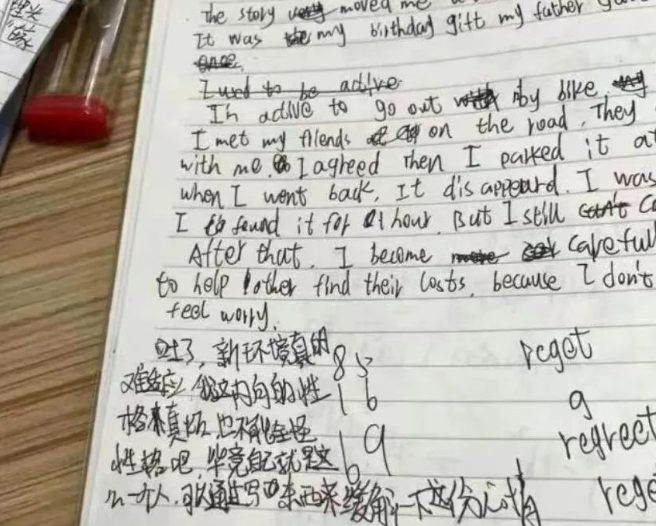 The story moved me
It was my birthday gift my father
I used to be active
I'm active to go out by bike.
I met my friends on the road. They
with me. I agreed Then I parked it at
when I went back. It disappeard. I was
I found it for 1 hour. But I still
After that. I become careful
to help other find their losts. because I don't
feel worry.
新环境真的 85 reget
难适应 内向的性 16 g
格真 也不能全怪 19 regrect
性格吧 毕竟自己就是这 6 rege
么一个人. 可以通过写东西来缓解一下这份心情